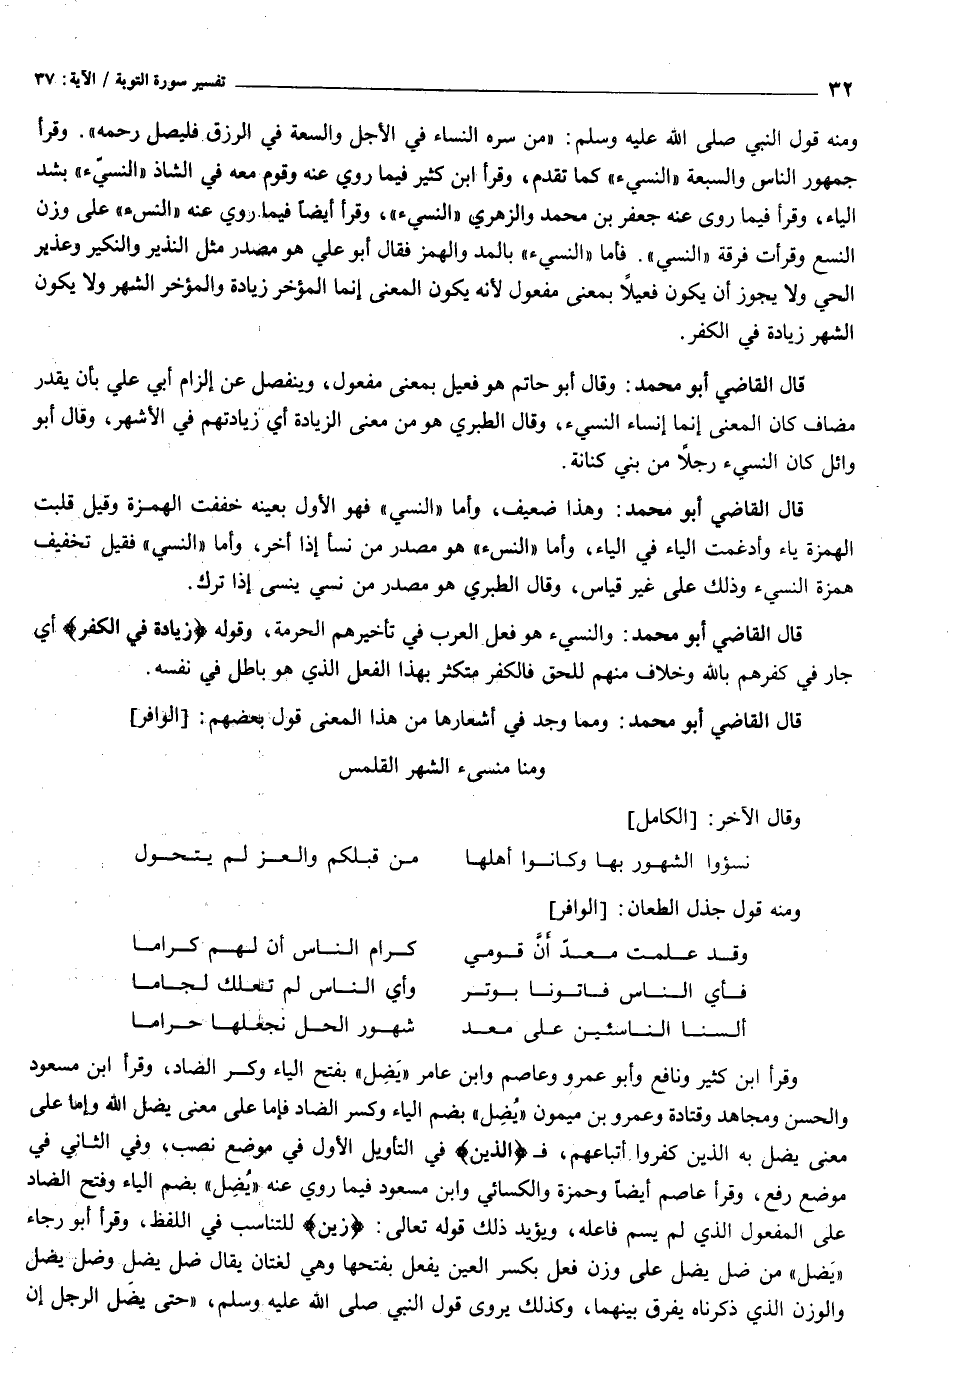 ٣٢ تفسير سورة التوبة / الآية: ٣٧
ومنه قول النبي صلى الله عليه وسلم: «من سره النساء في الأجل والسعة في الرزق فليصل رحمه». وقرأ
جمهور الناس والسبعة «النسيء» كما تقدم، وقرأ ابن كثير فيما روي عنه وقوم معه في الشاذ «النسيّء» بشد
الياء، وقرأ فيما روى عنه جعفر بن محمد والزهري «النسيء»، وقرأ أيضاً فيما روي عنه «النسء» على وزن
النسع وقرأت فرقة «النسي». فأما «النسيء» بالمد والهمز فقال أبو علي هو مصدر مثل النذير والنكير وعذير
الحي ولا يجوز أن يكون فعيلاً بمعنى مفعول لأنه يكون المعنى إنما المؤخر زيادة والمؤخر الشهر ولا يكون
الشهر زيادة في الكفر.
قال القاضي أبو محمد: وقال أبو حاتم هو فعيل بمعنى مفعول، وينفصل عن إلزام أبي علي بأن يقدر
مضاف كان المعنى إنما إنساء النسيء، وقال الطبري هو من معنى الزيادة أي زيادتهم في الأشهر، وقال أبو
وائل كان النسيء رجلاً من بني كنانة.
قال القاضي أبو محمد: وهذا ضعيف، وأما «النسي» فهو الأول بعينه خففت الهمزة وقيل قلبت
الهمزة ياء وأدغمت الياء في الياء، وأما «النسء» هو مصدر من نسأ إذا أخر، وأما «النسي» فقيل تخفيف
همزة النسيء وذلك على غير قياس، وقال الطبري هو مصدر من نسي ينسى إذا ترك.
قال القاضي أبو محمد: والنسيء هو فعل العرب في تأخيرهم الحرمة، وقوله ﴿زيادة في الكفر﴾ أي
جار في كفرهم بالله وخلاف منهم للحق فالكفر متكثر بهذا الفعل الذي هو باطل في نفسه.
قال القاضي أبو محمد: ومما وجد في أشعارها من هذا المعنى قول بعضهم: [الوافر]
ومنا منسيء الشهر القلمس
وقال الآخر: [الكامل]
نسؤوا الشهور بها وكانوا أهلها من قبلكم والعز لم يتحول
ومنه قول جذل الطعان: [الوافر]
وقد علمت معدّ أَنَّ قومي كرام الناس أن لهم كراما
فأي الناس فاتونا بوتر وأي الناس لم تعلك لجاما
ألسنا الناسئين على معد شهور الحل نجعلها حراما
وقرأ ابن كثير ونافع وأبو عمرو وعاصم وابن عامر «يَضِل» بفتح الياء وكسر الضاد، وقرأ ابن مسعود
والحسن ومجاهد وقتادة وعمرو بن ميمون «يُضِل» بضم الياء وكسر الضاد فإما على معنى يضل الله وإما على
معنى يضل به الذين كفروا أتباعهم، فـ ﴿الذين﴾ في التأويل الأول في موضع نصب، وفي الثاني في
موضع رفع، وقرأ عاصم أيضاً وحمزة والكسائي وابن مسعود فيما روي عنه «يُضِل» بضم الياء وفتح الضاد
على المفعول الذي لم يسم فاعله، ويؤيد ذلك قوله تعالى: ﴿زين﴾ للتناسب في اللفظ، وقرأ أبو رجاء
«يَضل» من ضل يضل على وزن فعل بكسر العين يفعل بفتحها وهي لغتان يقال ضل يضل وضل يضل
والوزن الذي ذكرناه يفرق بينهما، وكذلك يروى قول النبي صلى الله عليه وسلم، «حتى يضَل الرجل إن